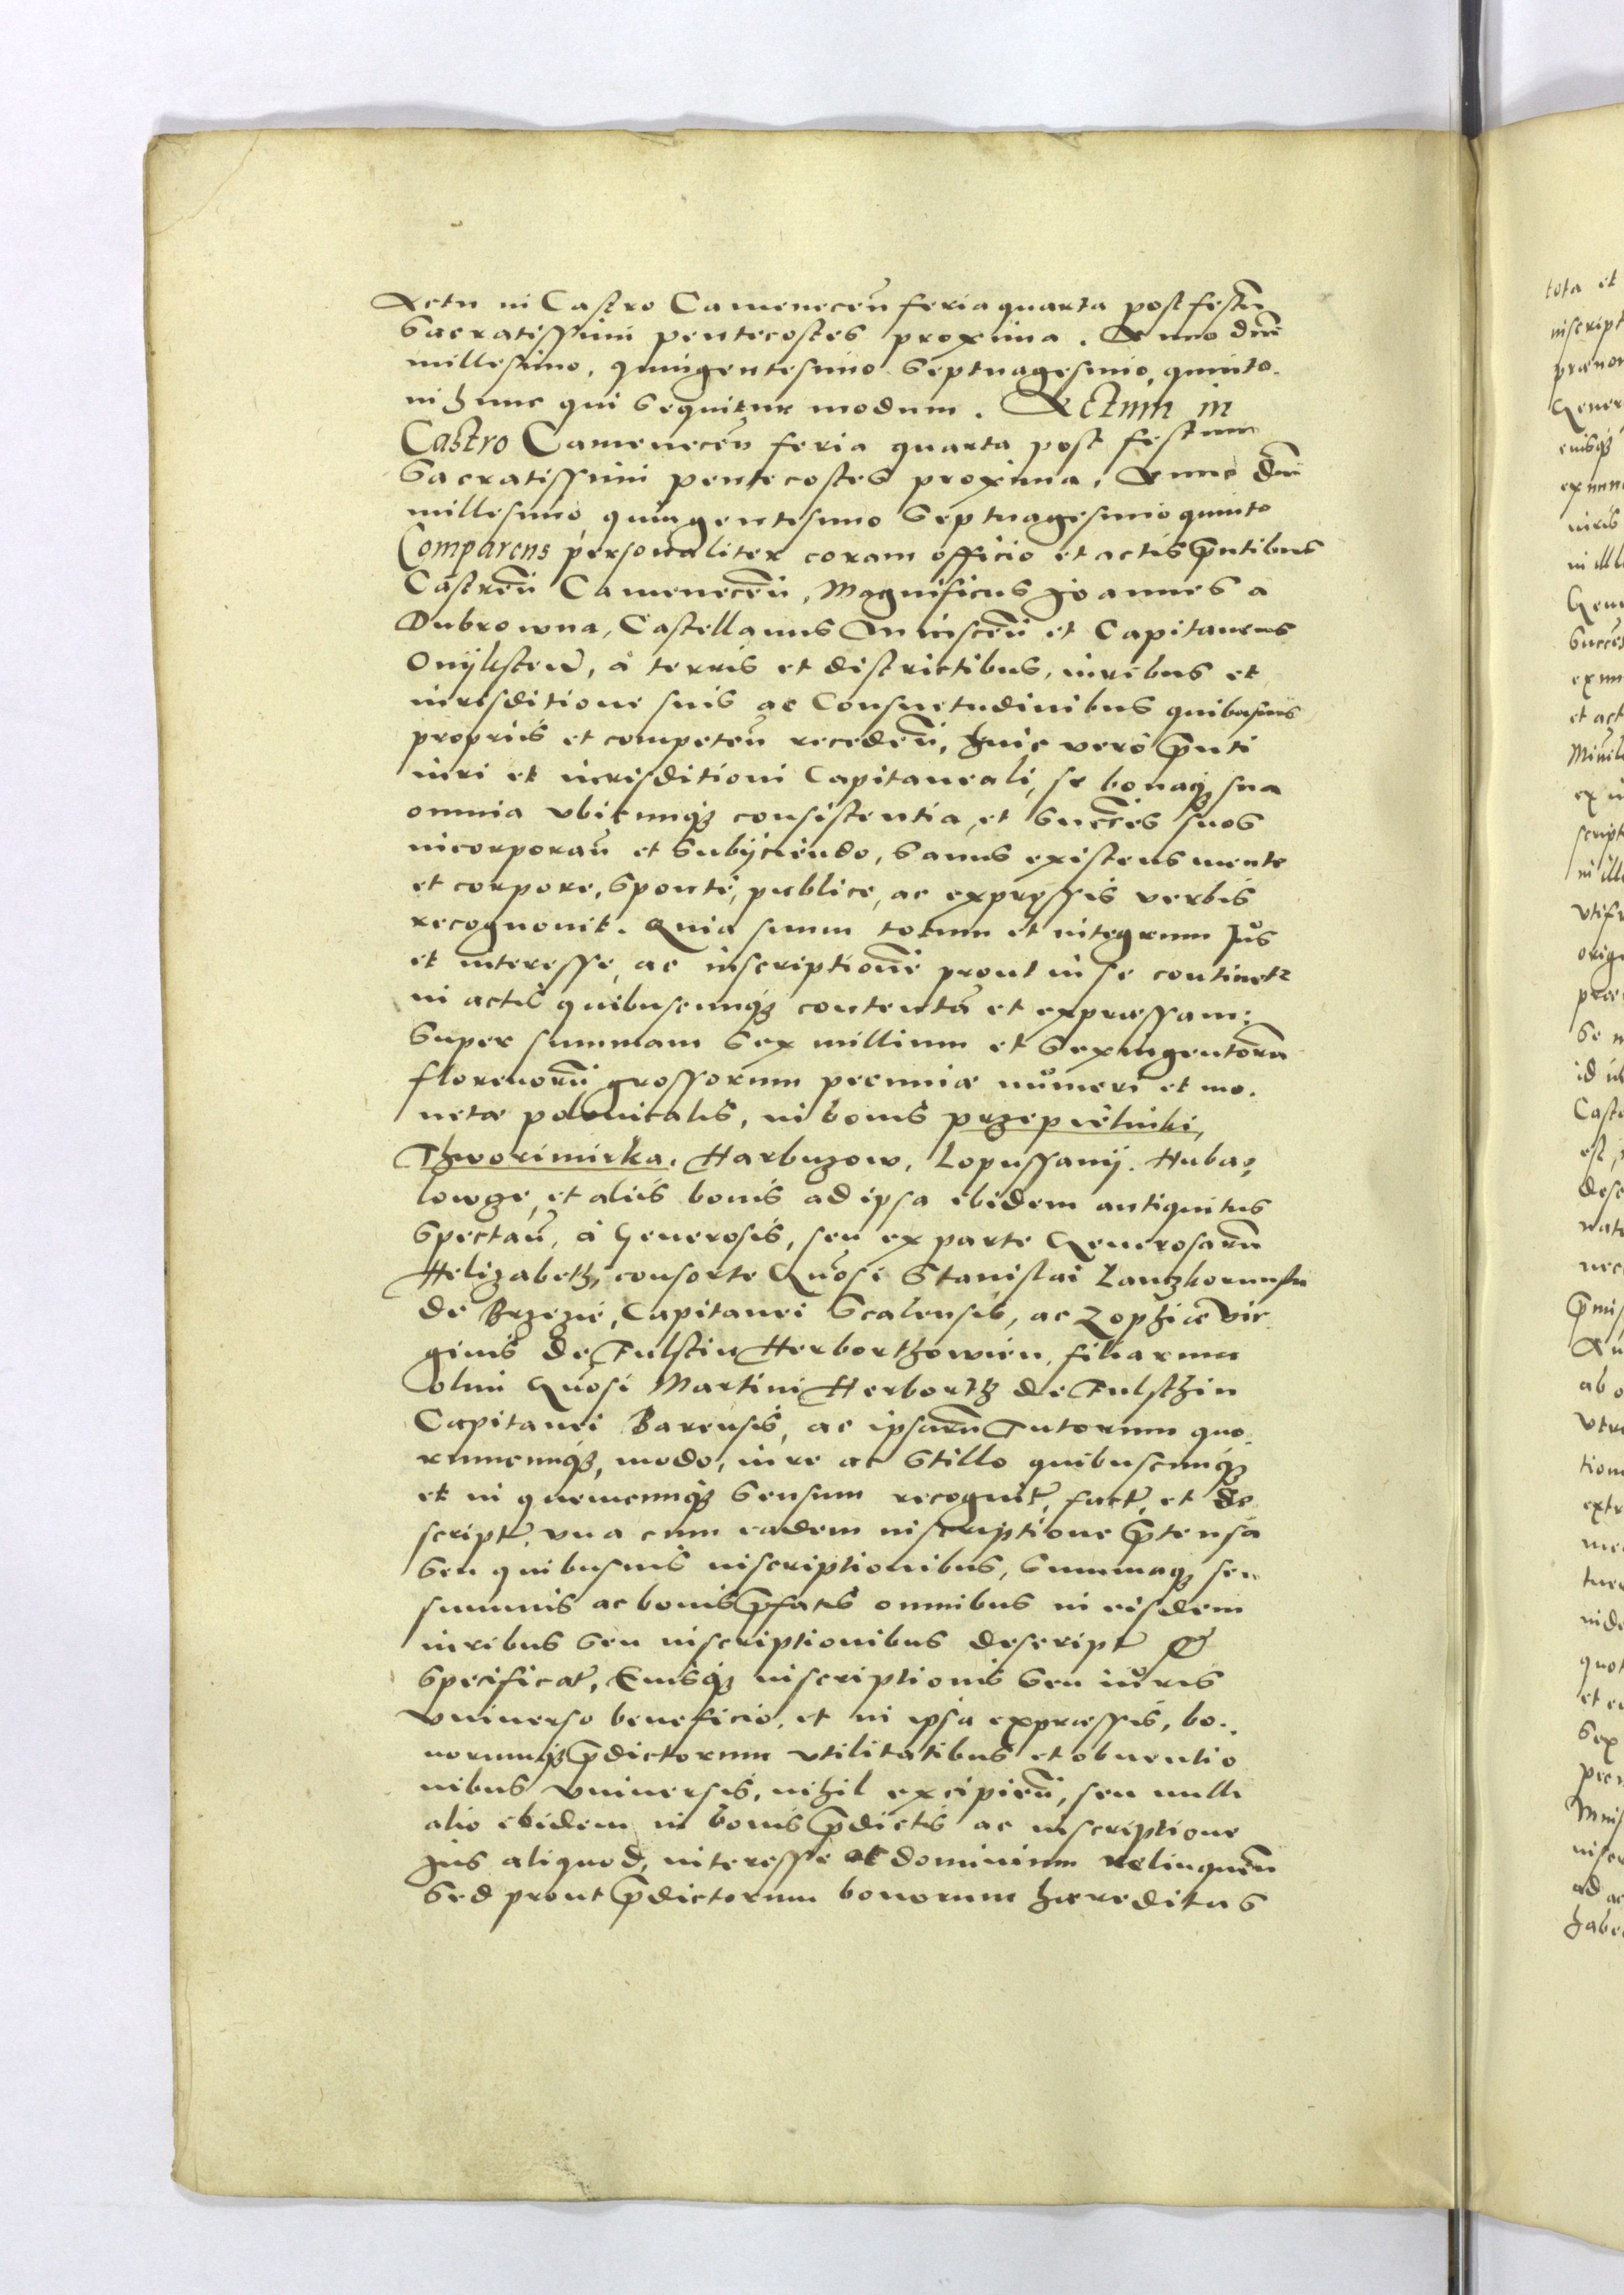 Actu in Castro Cameneceñ feria quarta post festũ
Sacratissimi pentecostes proxima. Anno dñi
millesimo, quingentesimo septuagesimo, quinto.
in hunc qui sequitur modum. Actum in
Castro Cameneceñ feria quarta post festum
Sacratissimi pentecostes proxima, Anno dñi
millesimo, quingentesimo septuagesimo quinto
Comparens personaliter coram officio et actis p̃ntibus
Castreñ Cameneceñ, Magnificus Joannes a
Dubrowna, Castellanus Miedisceñ et Capitaneus
à terris et districtibus, iuribus et
iurisditione suis ac Consuetudinibus quibusuis
propriis et competeñ recedeñ, huic verò p̃nti
iuri et iurisditioni Capitaneali, se bonaq3 sua
omnia vbicunq3 consistentia, et succ̃es suos
incorporañ et subijciendo, sanus existens mente
et corpore, sponte, publice, ac expressis verbis
recognouit. Quia suum totum et integrum Jus
et interesse, ac inscriptionẽ prout in se continetr
in actis quibuscunq3 contentã et expraessam:
Super summam sex millium et sexingentorũ
florenorũ grossorum pecuniae numeri et mo.
netae polonicalis, in bonis przeprẽlniki,
Thworimirka, Harbuzow, Lopussanij. Huba,
lowze, et aliis bonis ad ipsa ibidem antiquitus
spectañ, à Generosis, seu ex parte Generosarũ
Helizabeth, consorte Gñosi Stanislai Lanzkorunski
de Brzezie, Capitanei Scalensis, ac Zophiae vir
ginis de Fulstin Herborthowien, filiarum
olim Gñosi Martini Herborth de Fulsthin
Capitanei Barensis, ac ipsarũ Tutorum quo.
rumcunq3, modo, iure ac stillo quibuscunq3
et in quemcunq3 sensum recognit, fact, et de
script, vna cum eadem inscriptione p̃tensa
seu quibusuis inscriptionibus, summaq3 seu
summis ac bonis p̃fatis omnibus in eisdem
iuribus seu inscriptionibus descript &
specificat, Eiusq3 inscriptionis seu iuris
vniuerso beneficio, et in ipsa expraessis, bo.
norumq3 p̃dictorum vtilitatibus et obuentio
nibus vniuersis, nihil excipieñ, seu nulli
alio ibidem in bonis p̃dictis ac inscriptione
Jus aliquod, interesse et dominium relinqueñ
Sed prout p̃dictorum bonorum haereditas